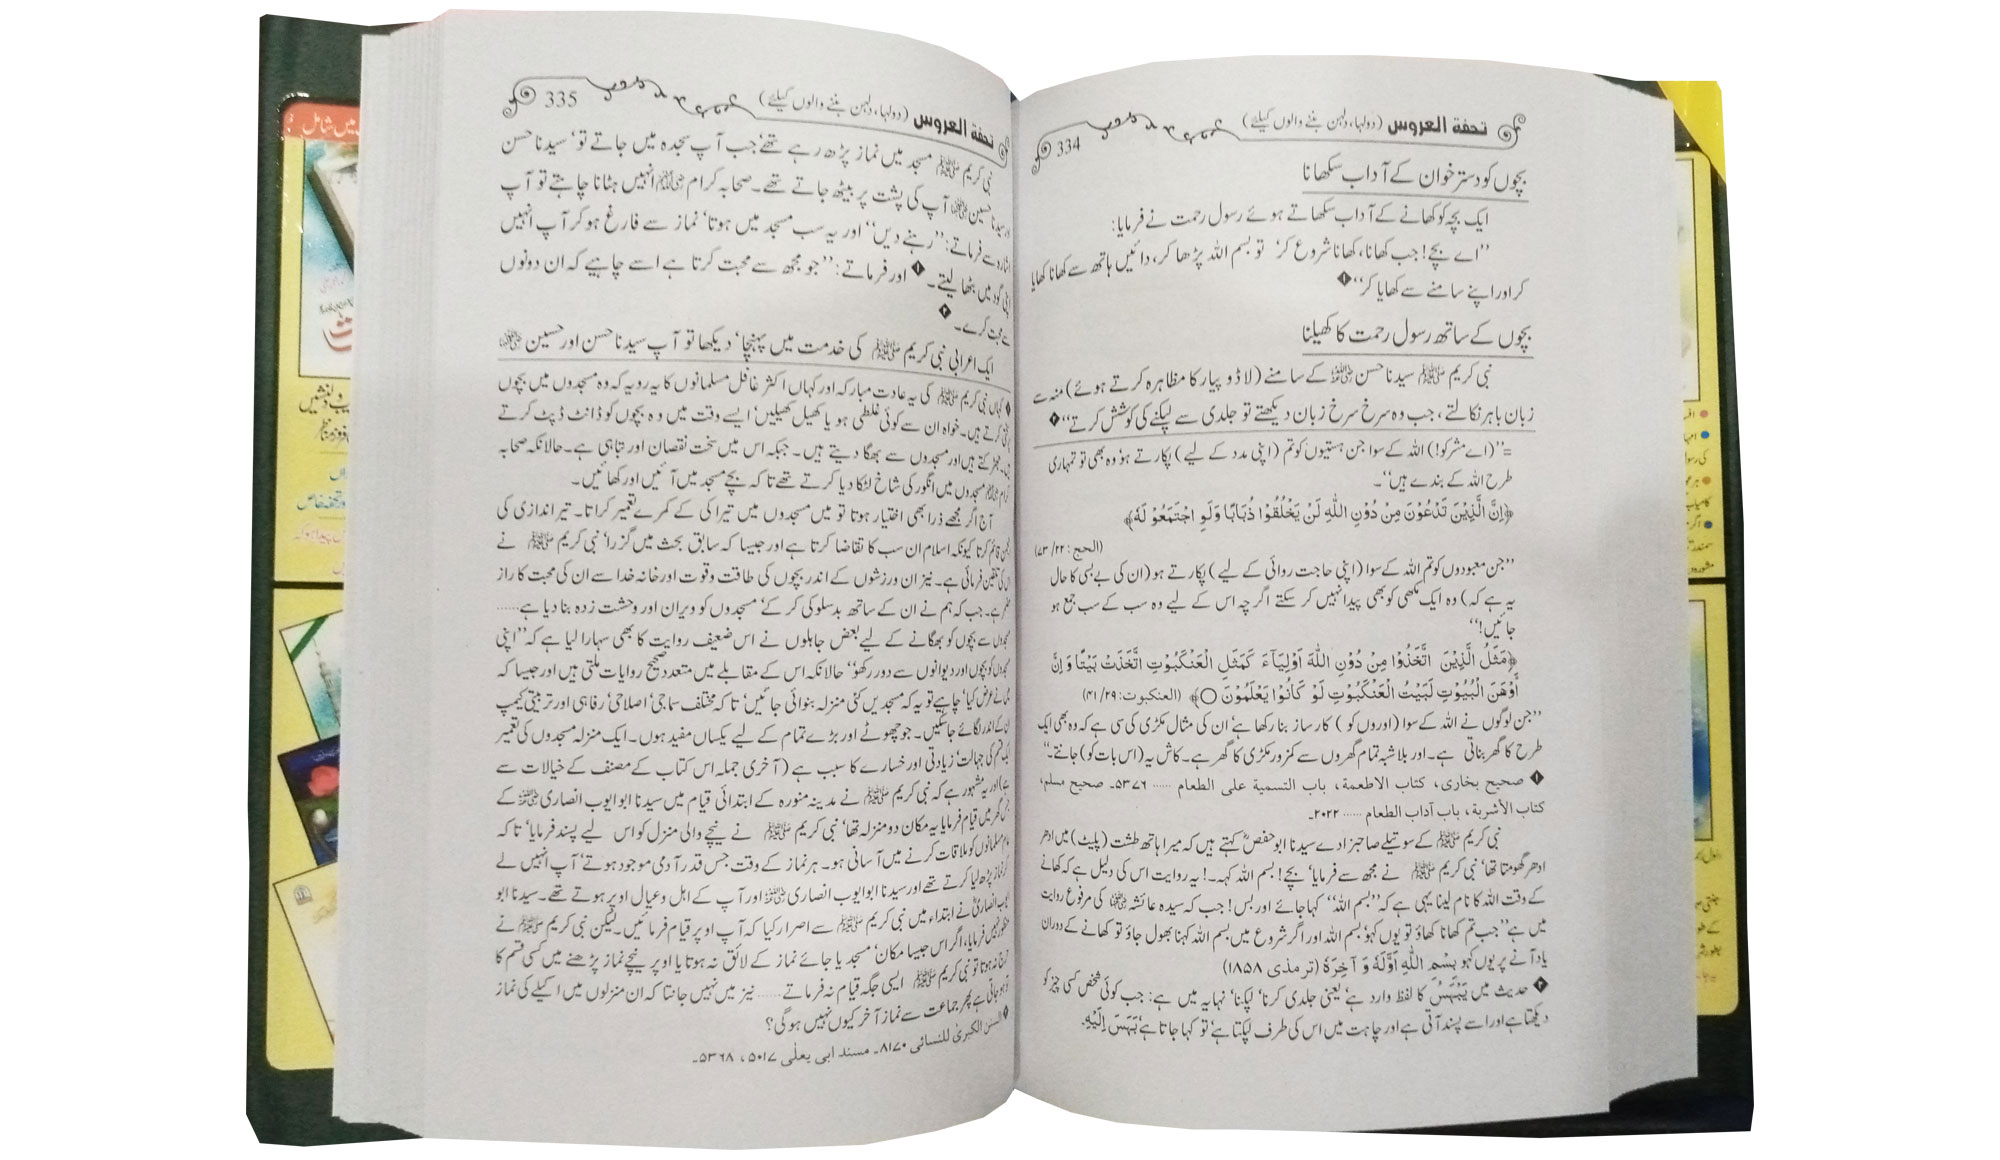 تحفة العروس (دولہا، دلہن بننے والوں کیلئے)
334
بچوں کو دستر خوان کے آداب سکھانا
ایک بچہ کو کھانے کے آداب سکھاتے ہوئے رسول رحمت نے فرمایا:
”اے بچے! جب کھانا، کھانا شروع کر‘ تو بسم اللہ پڑھا کر، دائیں ہاتھ سے کھانا کھایا
کر اور اپنے سامنے سے کھایا کر“ ۱
بچوں کے ساتھ رسول رحمت کا کھیلنا
نبی کریم ﷺ سیدنا حسن کے سامنے (لاڈ و پیار کا مظاہرہ کرتے ہوئے) منہ سے
زبان باہر نکالتے، جب وہ سرخ سرخ زبان دیکھتے تو جلدی سے لپکنے کی کوشش کرتے“ ۲
=”(اے مشرکو!) اللہ کے سوا جن ہستیوں کو تم (اپنی مدد کے لیے) پکارتے ہو‘ وہ بھی تو تمہاری
طرح اللہ کے بندے ہیں“۔
﴿اِنَّ الَّذِيْنَ تَدْعُوْنَ مِنْ دُوْنِ اللّٰهِ لَنْ يَخْلُقُوْا ذُبَابًا وَلَوِ اجْتَمَعُوْ لَهٗ﴾
(الحج: ۲۲/ ۷۳)
”جن معبودوں کو تم اللہ کے سوا (اپنی حاجت روائی کے لیے) پکارتے ہو (ان کی بے بسی کا حال
یہ ہے کہ) وہ ایک مکھی کو بھی پیدا نہیں کر سکتے اگرچہ اس کے لیے وہ سب کے سب جمع ہو
جائیں!“
﴿مَثَلُ الَّذِيْنَ اتَّخَذُوْا مِنْ دُوْنِ اللّٰهِ اَوْلِيَآءَ كَمَثَلِ الْعَنْكَبُوْتِ اتَّخَذَتْ بَيْتًا وَاِنَّ
أَوْهَنَ الْبُيُوْتِ لَبَيْتُ الْعَنْكَبُوْتِ لَوْ كَانُوْا يَعْلَمُوْنَ ○﴾ (العنكبوت: ۲۹/ ۴۱)
”جن لوگوں نے اللہ کے سوا (اوروں کو) کارساز بنا رکھا ہے‘ ان کی مثال مکڑی کی سی ہے کہ وہ بھی ایک
طرح کا گھر بناتی ہے۔ اور بلاشبہ تمام گھروں سے کمزور مکڑی کا گھر ہے۔ کاش یہ (اس بات کو) جانتے۔“
۱ صحیح بخاری، کتاب الاطعمة، باب التسمية على الطعام ...... ۵۳۷۶۔ صحیح مسلم،
كتاب الأشربة، باب آداب الطعام ...... ۲۰۲۲۔
نبی کریم ﷺ کے سوتیلے صاحبزادے سیدنا ابو حفص کہتے ہیں کہ میرا ہاتھ طشت (پلیٹ) میں ادھر
ادھر گھومتا تھا‘ نبی کریم ﷺ نے مجھ سے فرمایا‘ بچے! بسم اللہ کہہ۔! یہ روایت اس کی دلیل ہے کہ کھانے
کے وقت اللہ کا نام لینا یہی ہے کہ ”بسم اللہ“ کہا جائے اور بس! جب کہ سیدہ عائشہ کی مرفوع روایت
میں ہے ”جب تم کھانا کھاؤ تو یوں کہو‘ بسم اللہ اور اگر شروع میں بسم اللہ کہنا بھول جاؤ تو کھانے کے دوران
یاد آنے پر یوں کہو بِسْمِ اللّٰهِ اَوَّلَهٗ وَ آخِرَهٗ (ترمذی ۱۸۵۸)
۲ حدیث میں یَبْهَسُ کا لفظ وارد ہے‘ یعنی جلدی کرنا‘ لپکنا‘ نہایہ میں ہے: جب کوئی شخص کسی چیز کو
دیکھتا ہے اور اسے پسند آتی ہے اور چاہت میں اس کی طرف لپکتا ہے‘ تو کہا جاتا ہے‘ بَهَسَ اِلَيْهِ.
تحفة العروس (دولہا، دلہن بننے والوں کیلئے)
335
نبی کریم ﷺ مسجد میں نماز پڑھ رہے تھے‘ جب آپ سجدہ میں جاتے تو‘ سیدنا حسن
اور سیدنا حسین آپ کی پشت پر بیٹھ جاتے تھے۔ صحابہ کرام انہیں ہٹانا چاہتے تو آپ
اشارہ سے فرماتے: ”رہنے دیں“ اور یہ سب مسجد میں ہوتا‘ نماز سے فارغ ہو کر آپ انہیں
اپنی گود میں بٹھا لیتے۔ ۱ اور فرماتے: ”جو مجھ سے محبت کرتا ہے اسے چاہیے کہ ان دونوں
سے محبت کرے۔ ۲
ایک اعرابی نبی کریم ﷺ کی خدمت میں پہنچا‘ دیکھا تو آپ سیدنا حسن اور حسین
کہاں نبی کریم ﷺ کی یہ عادت مبارکہ اور کہاں اکثر غافل مسلمانوں کا یہ رویہ کہ وہ مسجدوں میں بچوں
کرتے ہیں۔ خواہ ان سے کوئی غلطی ہو یا کھیل کھیلیں‘ ایسے وقت میں وہ بچوں کو ڈانٹ ڈپٹ کرتے
ہیں۔ جھڑکتے ہیں اور مسجدوں سے بھگا دیتے ہیں۔ جبکہ اس میں سخت نقصان اور تباہی ہے۔ حالانکہ صحابہ
کرام مسجدوں میں انگور کی شاخ لٹکا دیا کرتے تھے تاکہ بچے مسجد میں آئیں اور کھائیں۔
آج اگر مجھے ذرا بھی اختیار ہوتا تو میں مسجدوں میں تیراکی کے کمرے تعمیر کراتا۔ تیر اندازی کی
قائم کرتا کیونکہ اسلام ان سب کا تقاضا کرتا ہے اور جیسا کہ سابق بحث میں گزرا‘ نبی کریم ﷺ نے
اس کی تلقین فرمائی ہے۔ نیز ان ورزشوں کے اندر بچوں کی طاقت و قوت اور خانہ خدا سے ان کی محبت کا راز
ہے۔ جب کہ ہم نے ان کے ساتھ بدسلوکی کر کے‘ مسجدوں کو ویران اور وحشت زدہ بنا دیا ہے......
مسجدوں سے بچوں کو بھگانے کے لیے بعض جاہلوں نے اس ضعیف روایت کا بھی سہارا لیا ہے کہ ”اپنی
مسجدوں کو بچوں اور دیوانوں سے دور رکھو“ حالانکہ اس کے مقابلے میں متعدد صحیح روایات ملتی ہیں اور جیسا کہ
نے عرض کیا‘ چاہیے تو یہ کہ مسجدیں کئی منزلہ بنوائی جائیں‘ تاکہ مختلف سماجی‘ اصلاحی‘ رفاہی اور تربیتی کیمپ
ان کے اندر لگائے جا سکیں۔ جو چھوٹے اور بڑے تمام کے لیے یکساں مفید ہوں۔ ایک منزلہ مسجدوں کی تعمیر
ایک قسم کی جہالت‘ زیادتی اور خسارے کا سبب ہے (آخری جملہ اس کتاب کے مصنف کے خیالات سے
ہے) اور یہ مشہور ہے کہ نبی کریم ﷺ نے مدینہ منورہ کے ابتدائی قیام میں سیدنا ابو ایوب انصاری کے
جس گھر میں قیام فرمایا یہ مکان دو منزلہ تھا‘ نبی کریم ﷺ نے نیچے والی منزل کو اس لیے پسند فرمایا‘ تاکہ
عام مسلمانوں کو ملاقات کرنے میں آسانی ہو۔ ہر نماز کے وقت جس قدر آدمی موجود ہوتے‘ آپ انہیں لے
کر نماز پڑھ لیا کرتے تھے اور سیدنا ابو ایوب انصاری اور آپ کے اہل و عیال اوپر ہوتے تھے۔ سیدنا ابو
ایوب انصاری نے ابتداء میں نبی کریم ﷺ سے اصرار کیا کہ آپ اوپر قیام فرمائیں۔ لیکن نبی کریم ﷺ نے
منظور نہیں فرمایا، اگر اس جیسا مکان‘ مسجد یا جائے نماز کے لائق نہ ہوتا یا اوپر نیچے نماز پڑھنے میں کسی قسم کا
حرج نہ ہوتا تو نبی کریم ﷺ ایسی جگہ قیام نہ فرماتے...... نیز میں نہیں جانتا کہ ان منزلوں میں اکیلے کی نماز
تو ہو جاتی ہے پھر جماعت سے نماز آخر کیوں نہیں ہوگی؟
السنن الكبرىٰ للنسائی ۸۱۷۰۔ مسند ابی یعلٰی ۵۰۱۷، ۵۳۶۸۔